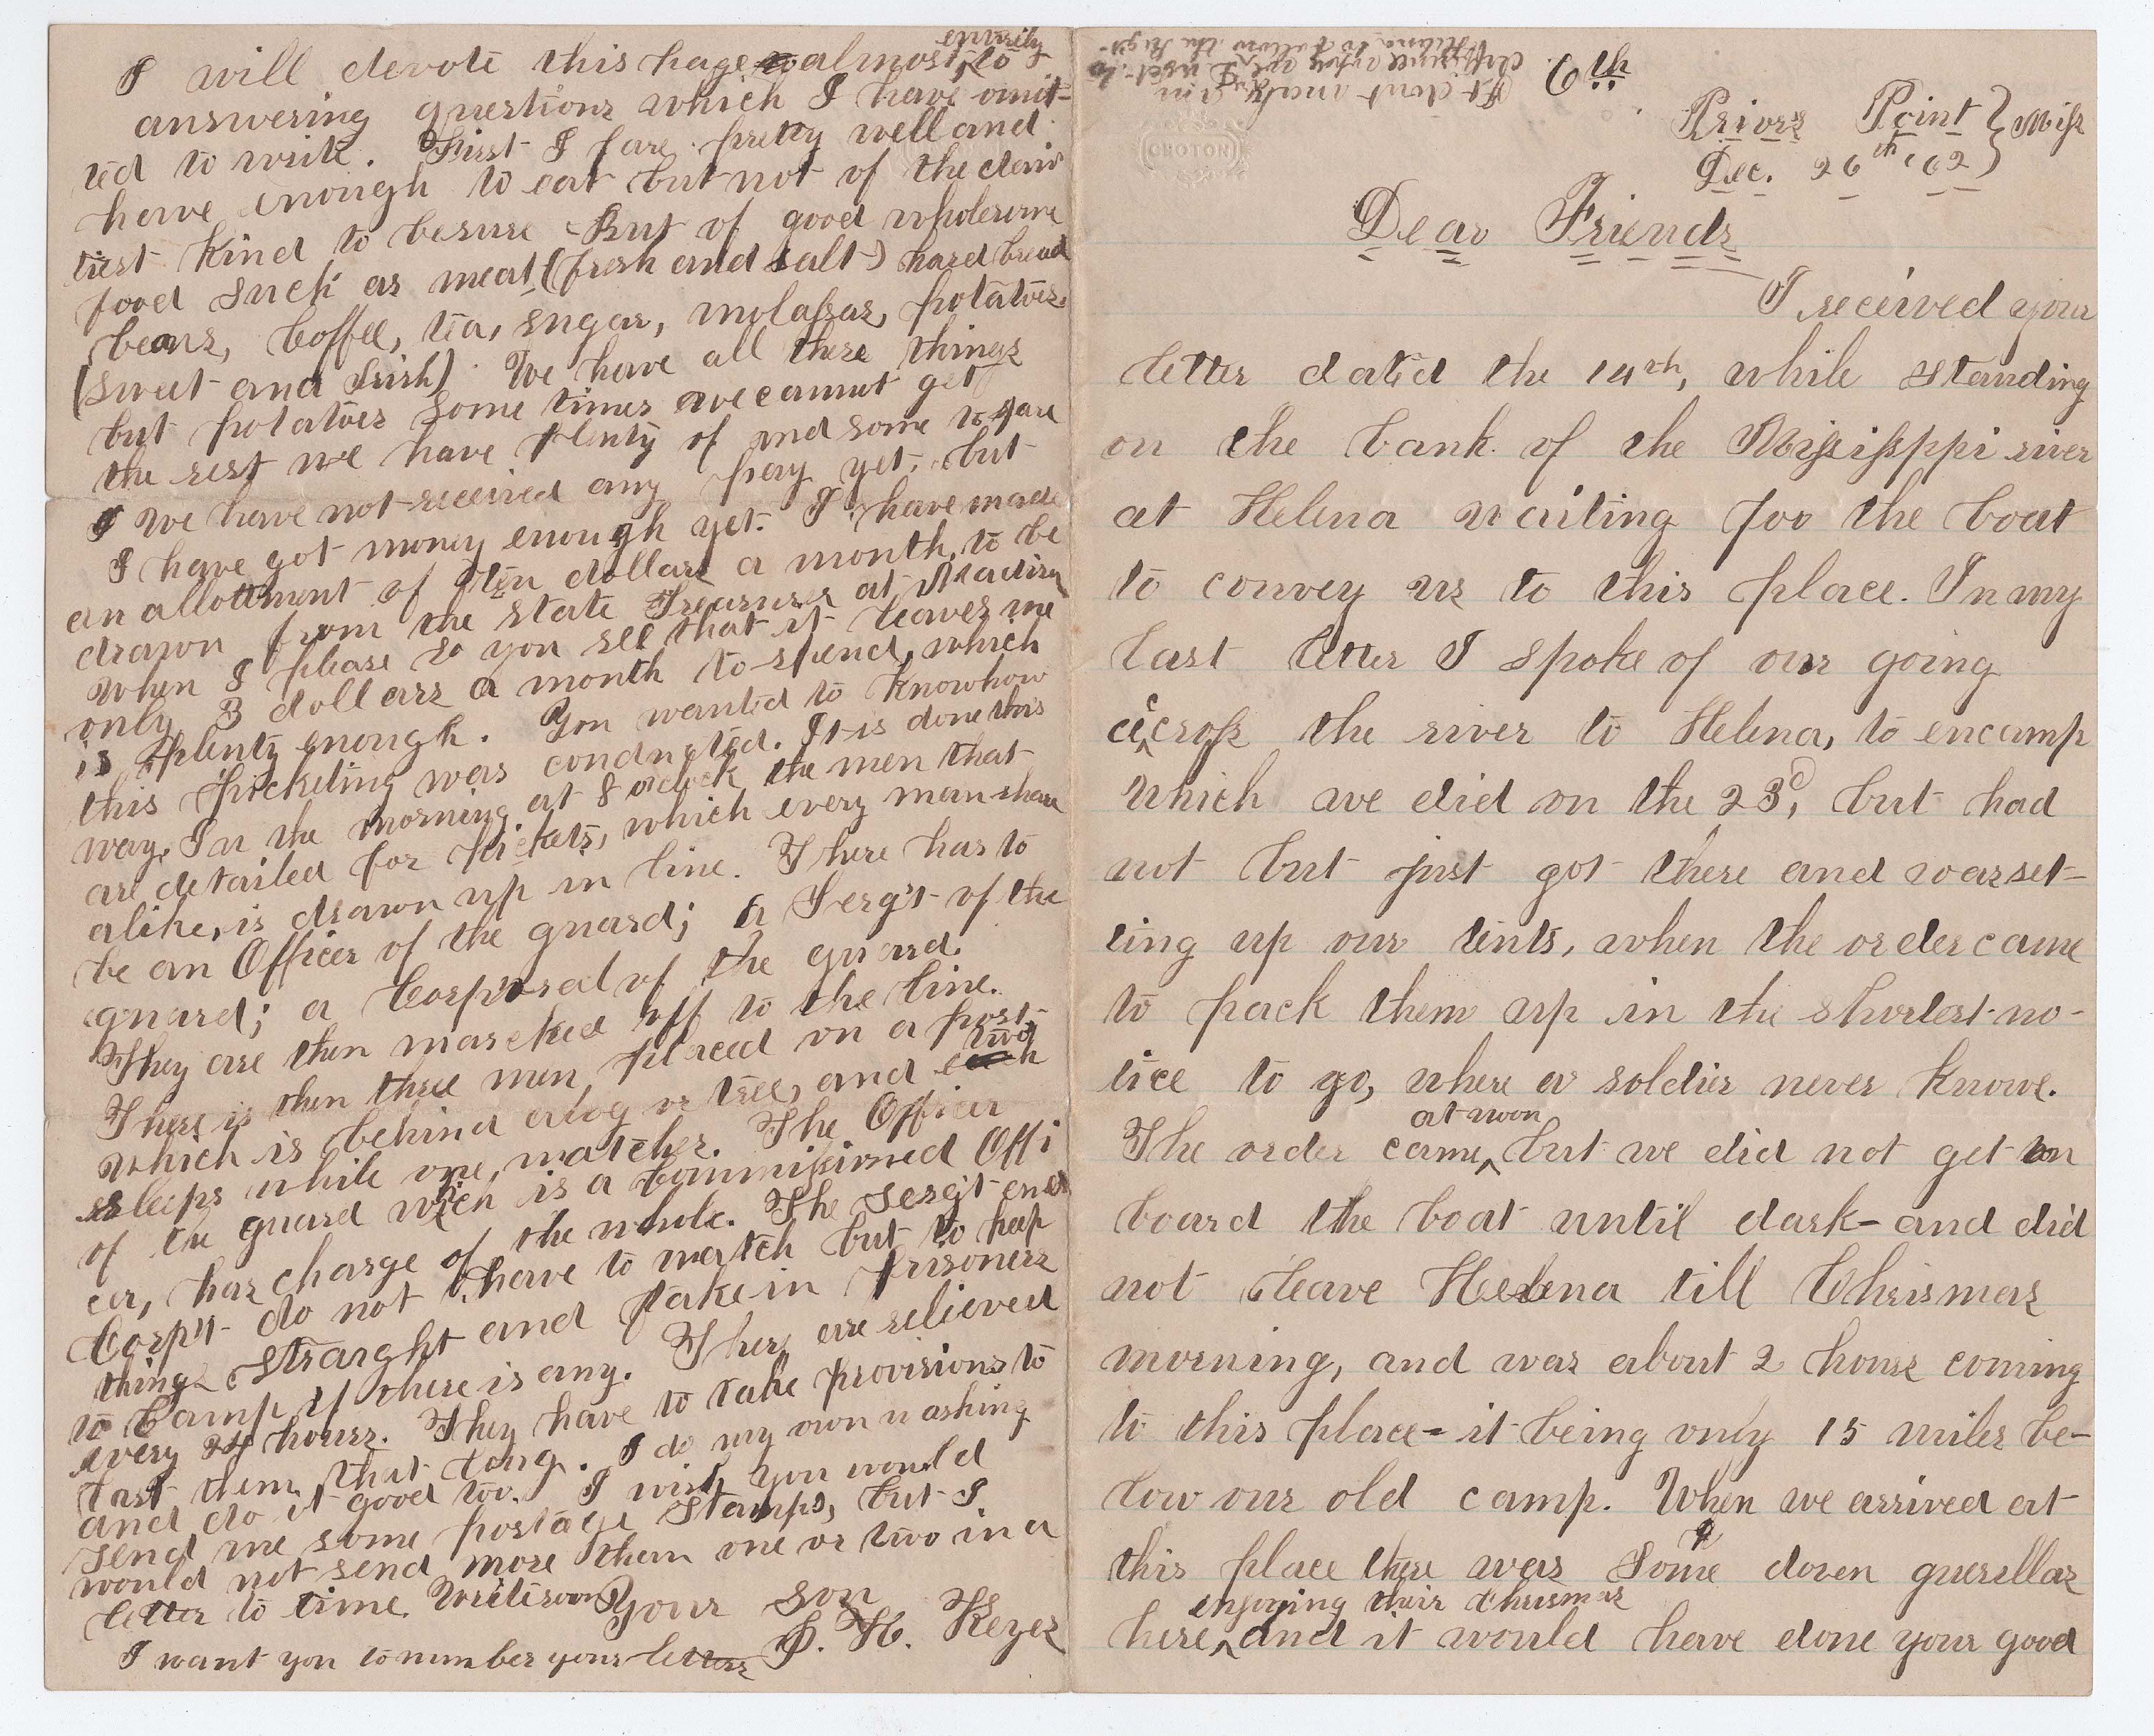 6th
Priors Point } Miss
Dec. 26th '62
Dear Friends
I received your
letter dated the 14th, while standing
on the bank of the Missisippi river
at Helena waiting for the boat
to convey us to this place. In my
last letter I spoke of our going
across the river to Helena, to encamp
which we did on the 23d, but had
not but just got there and was set-
ting up our tents, when the order came
to pack them up in the shortest no-
tice to go, where a soldier never knows.
The order came, at noon but we did not get on
board the boat until dark- and did
not leave Helena till Chrismas
morning, and was about 2 hours coming
to this place- it being only 15 miles be-
low our old camp. When we arrived at
this place there was some dozen guerillas
here enjoying their chrismas and it would have done your good
I will devote this page almost entirely to
answering questions which I have omit-
ted to write. First I fare pretty well and
have enough to eat but not of the dain
tiest kind to besure - But of good wholesome
food such as meat (fresh and salt) hard bread
beans, Coffee, tea, sugar, molassas, potatoes.
(sweet and Irish) We have all these things
but potatoes some times we cannot get
the rest we have plenty of and some to spare
We have not received any pay yet. but
I have got money enough yet. I have made
an allottment of ten dollars a month, to be
drawn from the state Treasurer at Madison
when I please so you see that it leaves me
only 3 dollars a month to spend, which
is plenty enough. You wanted to know how
this picketing was conducted. It is done this
way. In the morning at 8 oclock the men that
are detailed for pickets, which every man share
alike, is drawn up in line. There has to
be an Officer of the guard; a Serg't of the
guard; a Corporal of the guard.
They are then marched off to the line.
There is then three men placed on a post-
which is behind a log or tree, and two
sleeps while one watches. The Officer
of the guard which is a Commissioned Offi
cer, has charge of the whole. The Serg't and
Corp'l do not have to watch but to keep
things straight and take in prisoners
to Camp if there is any. They are relieved
every 24 hours. They have to take provisions to
last them that long. I do my own washing
and do it good too. I wish you would
send me some postage Stamps, but I
would not send more than one or two in a
letter to time. Write soon Your son
I want you to number your letters D. H. Keyes
CROTON